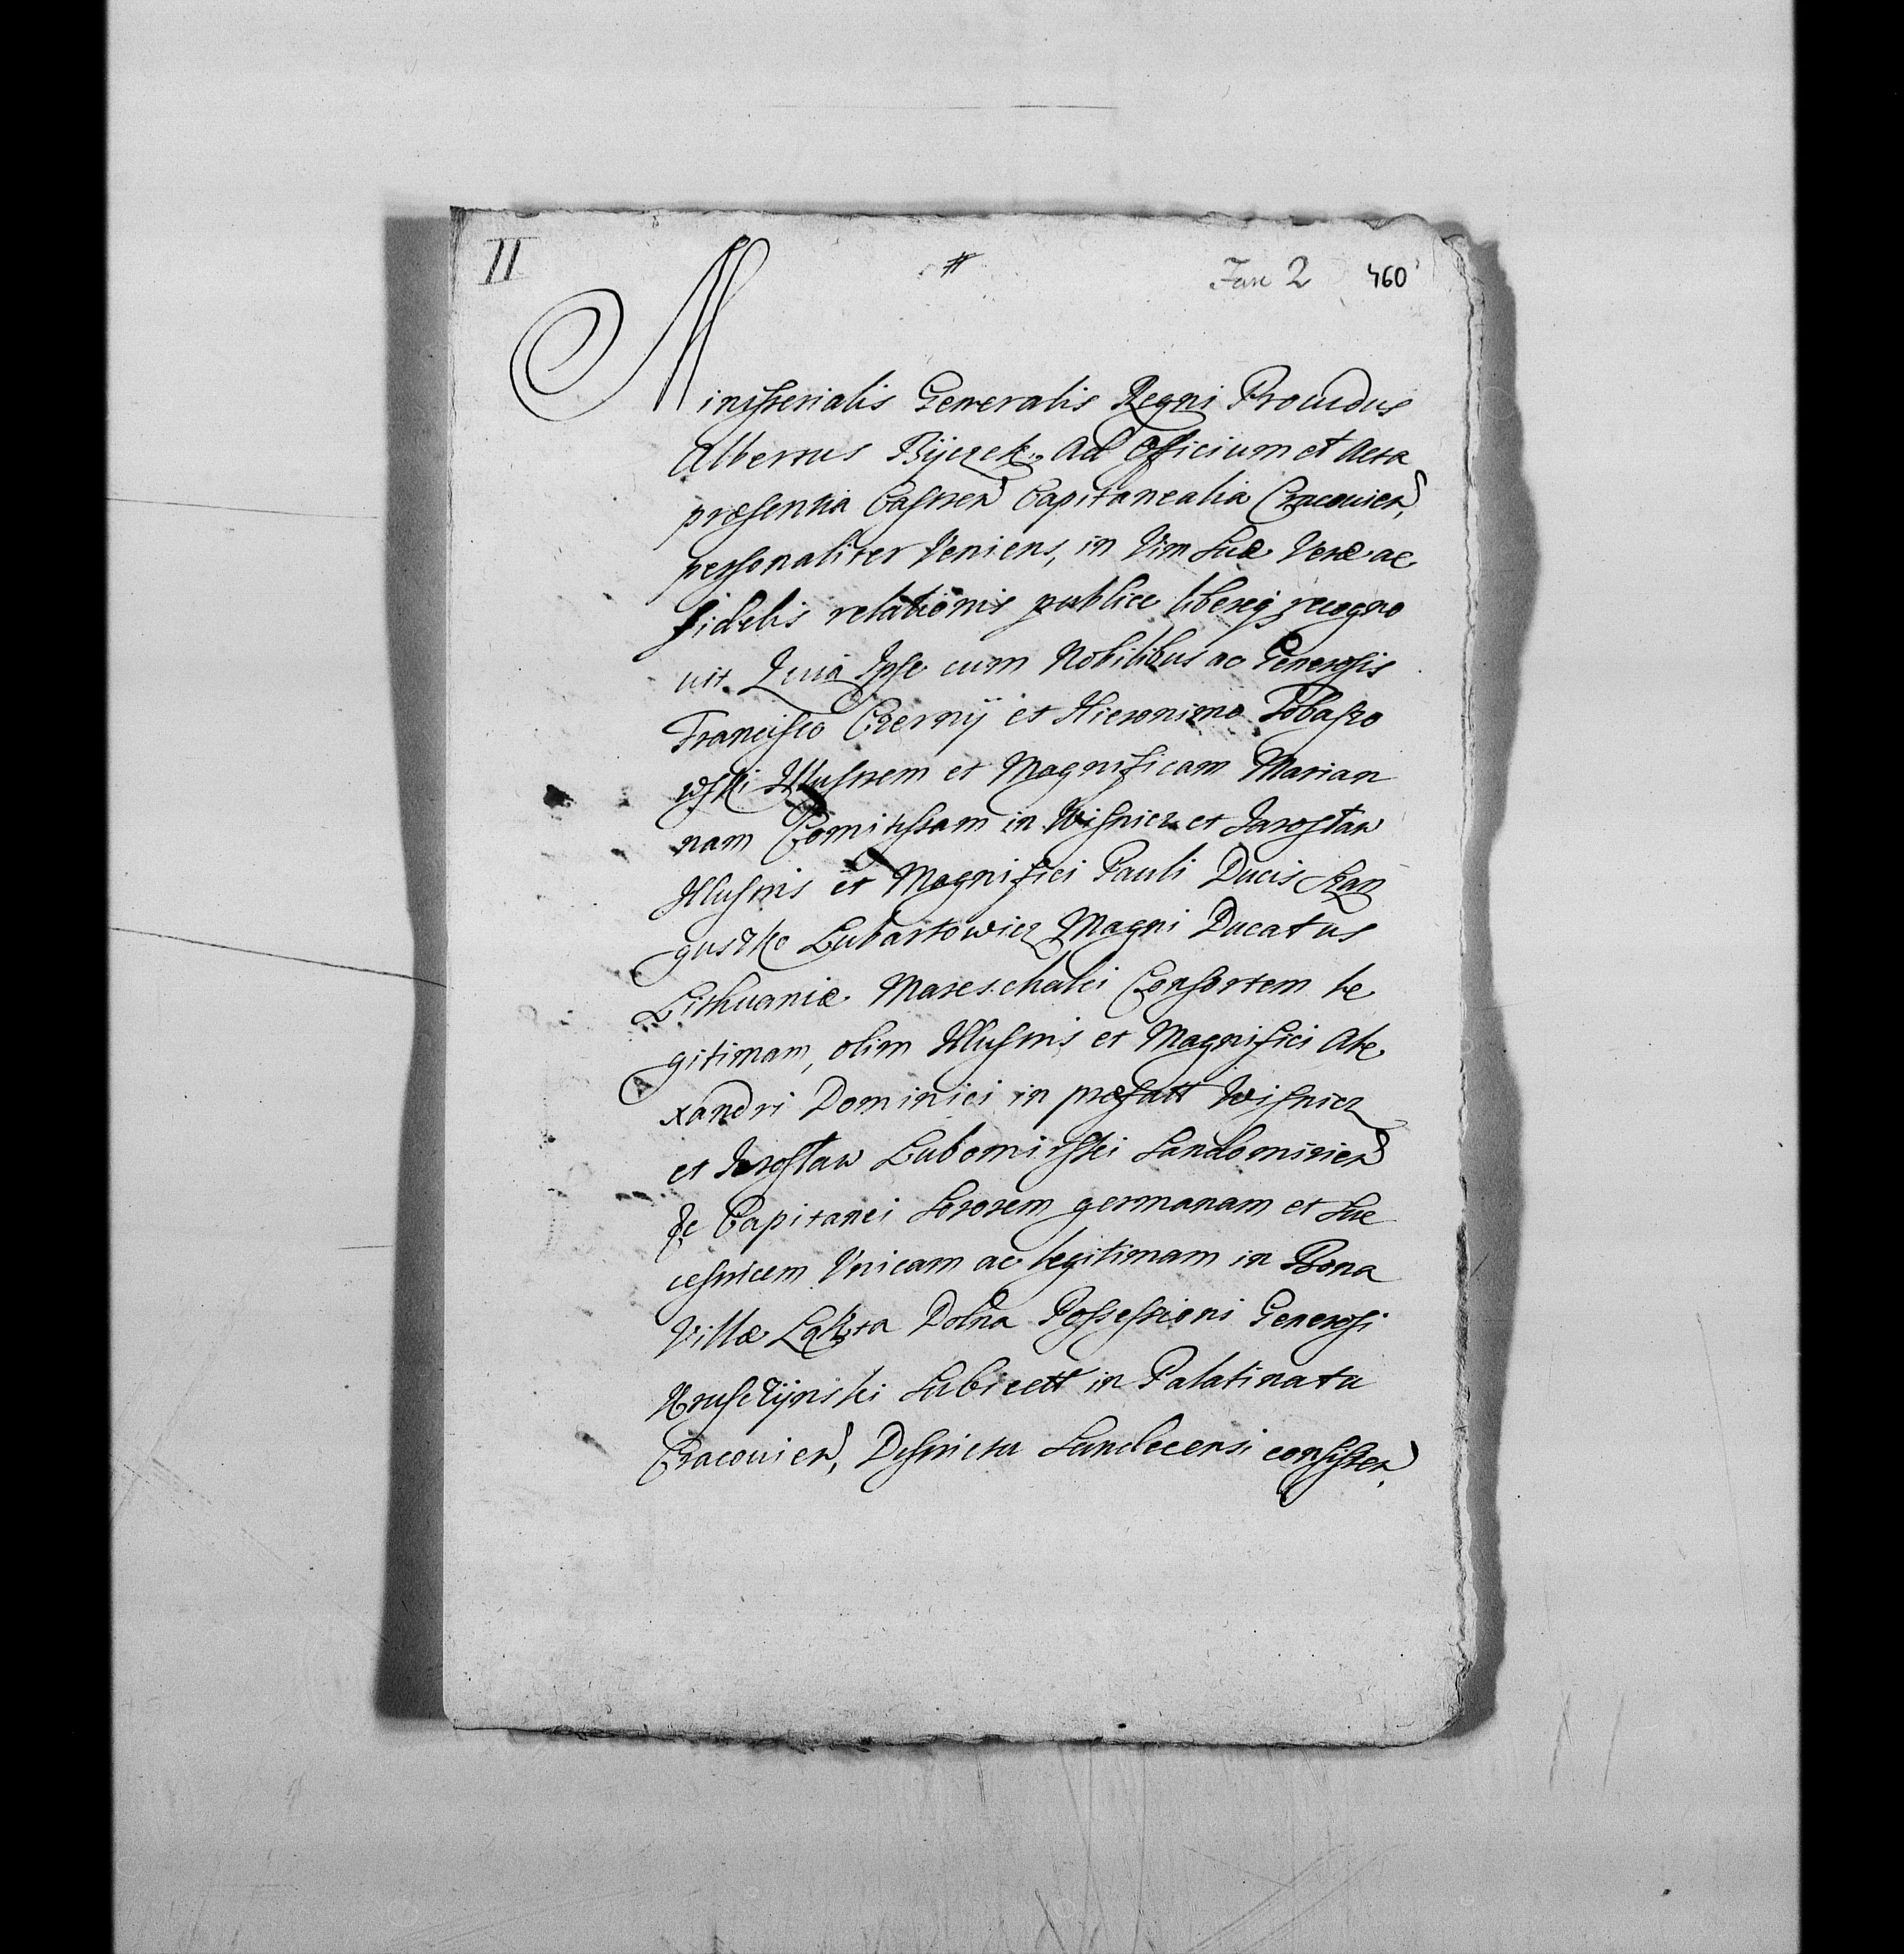 II # Fasc 2 460
Ministerialis Generalis Regni Providus
Albertus Byczek, ad Officium et Acta
præsentia Castren Capitanealia Cracovien,
personaliter Veniens, in Vim Suæ Veræ ac
fidelis relationis publice libereq recogno
vit. Quia Ipse cum Nobilibus ac Generosis
Francisco Czernÿ et Hieronimo
wski Illustrem et Magnificam Marian
nam Comitissam in Wisnicz et Jarosław
Illustris et Magnifici Pauli Ducis San
guszko Lubartowicz Magni Ducatus
Lithuaniæ Mareschalci Consortem le
gitimam, olim Illustris et Magnifici Ale
xandri Dominici in præfatt Wisnicz
et Jarosław Lubomirski Sandomirien
&c Capitanei Sororem germanam et Suc
cestricem Unicam ac legitimam in Bona
Villæ Łąkta Dolna Possessioni Generosi
Kruszÿnski Subiectt in Palatinatu
Cracovien, Districtu Sandecensi consisten,